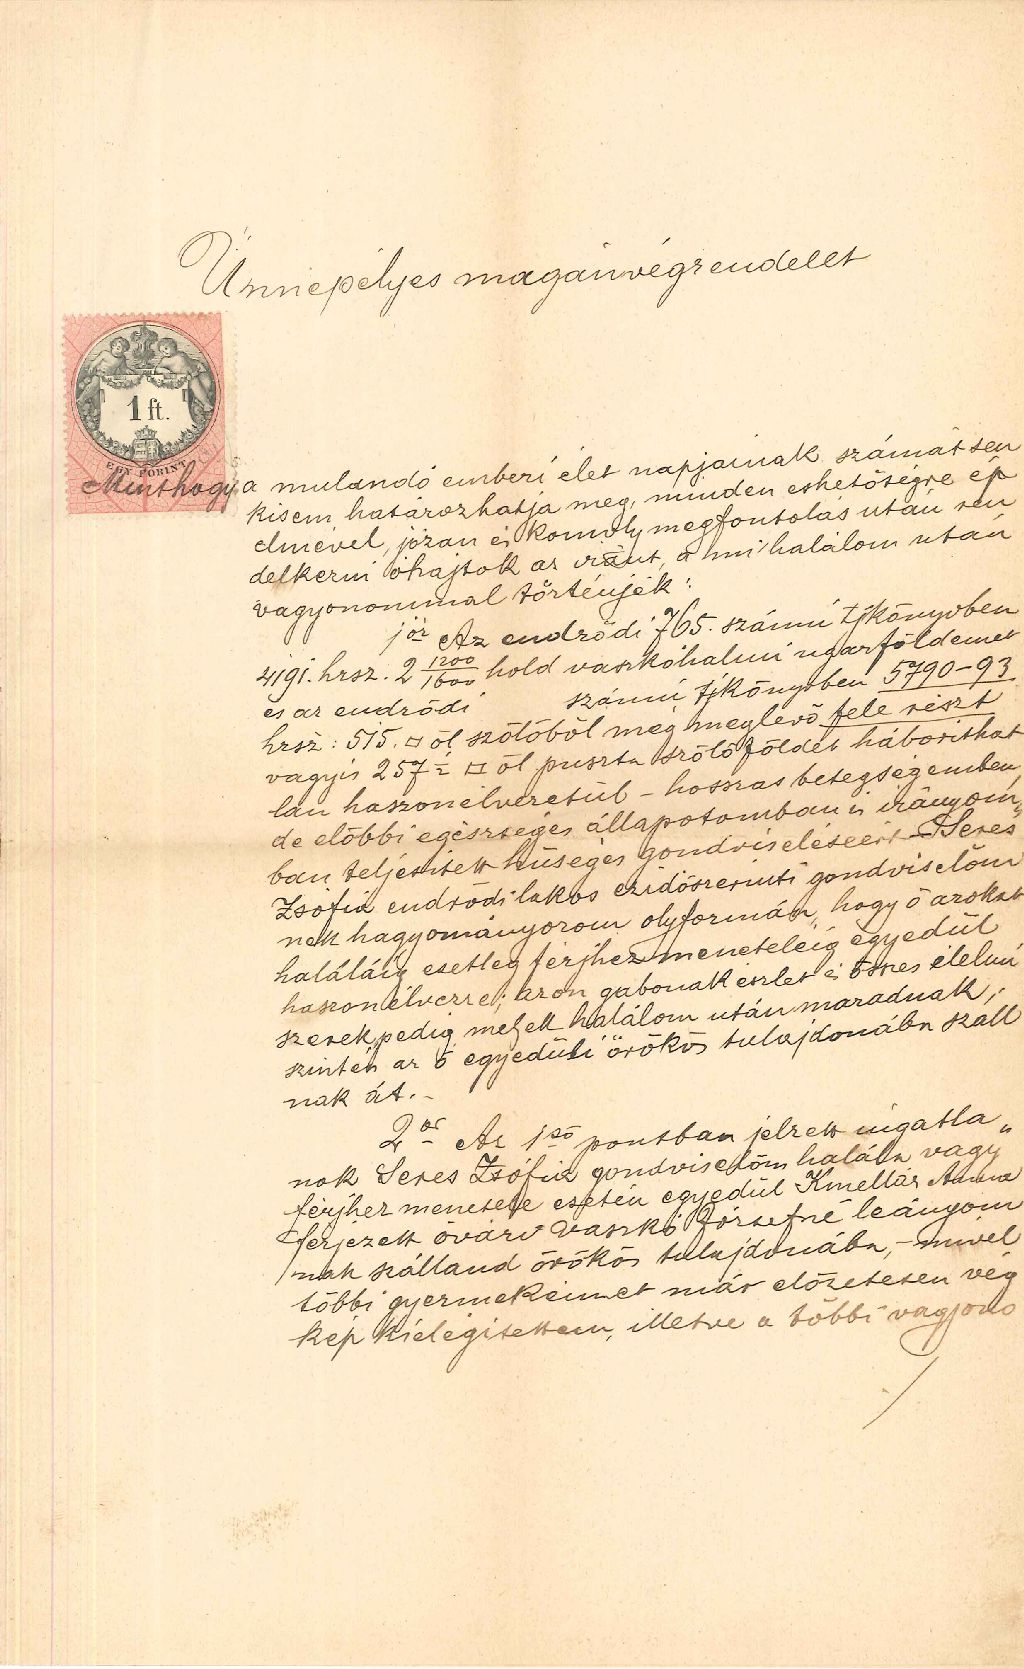 Ünnepélyes magánvégrendelet
1 ft.
EGY FORINT
Minthogy a mulandó emberi élet napjainak számát sen
kisem határozhatja meg, minden eshetőségre ép
elmével, józan és komoly megfontolás után ren
delkezni óhajtok az iránt, a mi halálom után
vagyonommal történjék:
1ör Az endrődi 765. számú tjkönyvben
4191. hrsz. 2 1200/1600 hold vaskóhalmi ugarföldemet
és az endrődi számú tjkönyvben 5790-93
hrsz: 515. □ öl szőlőből még meglevő fele részt
vagyis 257 ½ □ öl puszta szőlő földet háborithat
lan haszonélvezetül - hosszas betegségemben,
de előbbi egészséges állapotomban is irányom„
ban teljesitett hűséges gondviseléseért - Seres
Zsófia endrődi lakos ezidőszerinti gondviselőm
nek hagyományozom olyformán, hogy ő azokat
haláláig esetleg férjhez meneteléig egyedül
haszonélvezze; azon gabonakészlet és összes élelmi
szerek pedig, melyek halálom után maradnak,
szintén az ő egyedüli örökös tulajdonába száll
nak át. -
2or Az 1ső pontban jelzett ingatla„
nok Seres Zsófia gondviselőm halála vagy
férjhez menetele esetén egyedül Kmellár Anna
férjezett óvári Vaskó Józsefné leányom
nak szálland örökös tulajdonába, - mivel
többi gyermekeimet már előzetesen vég
kép kielégitettem, illetve a többi vagyono